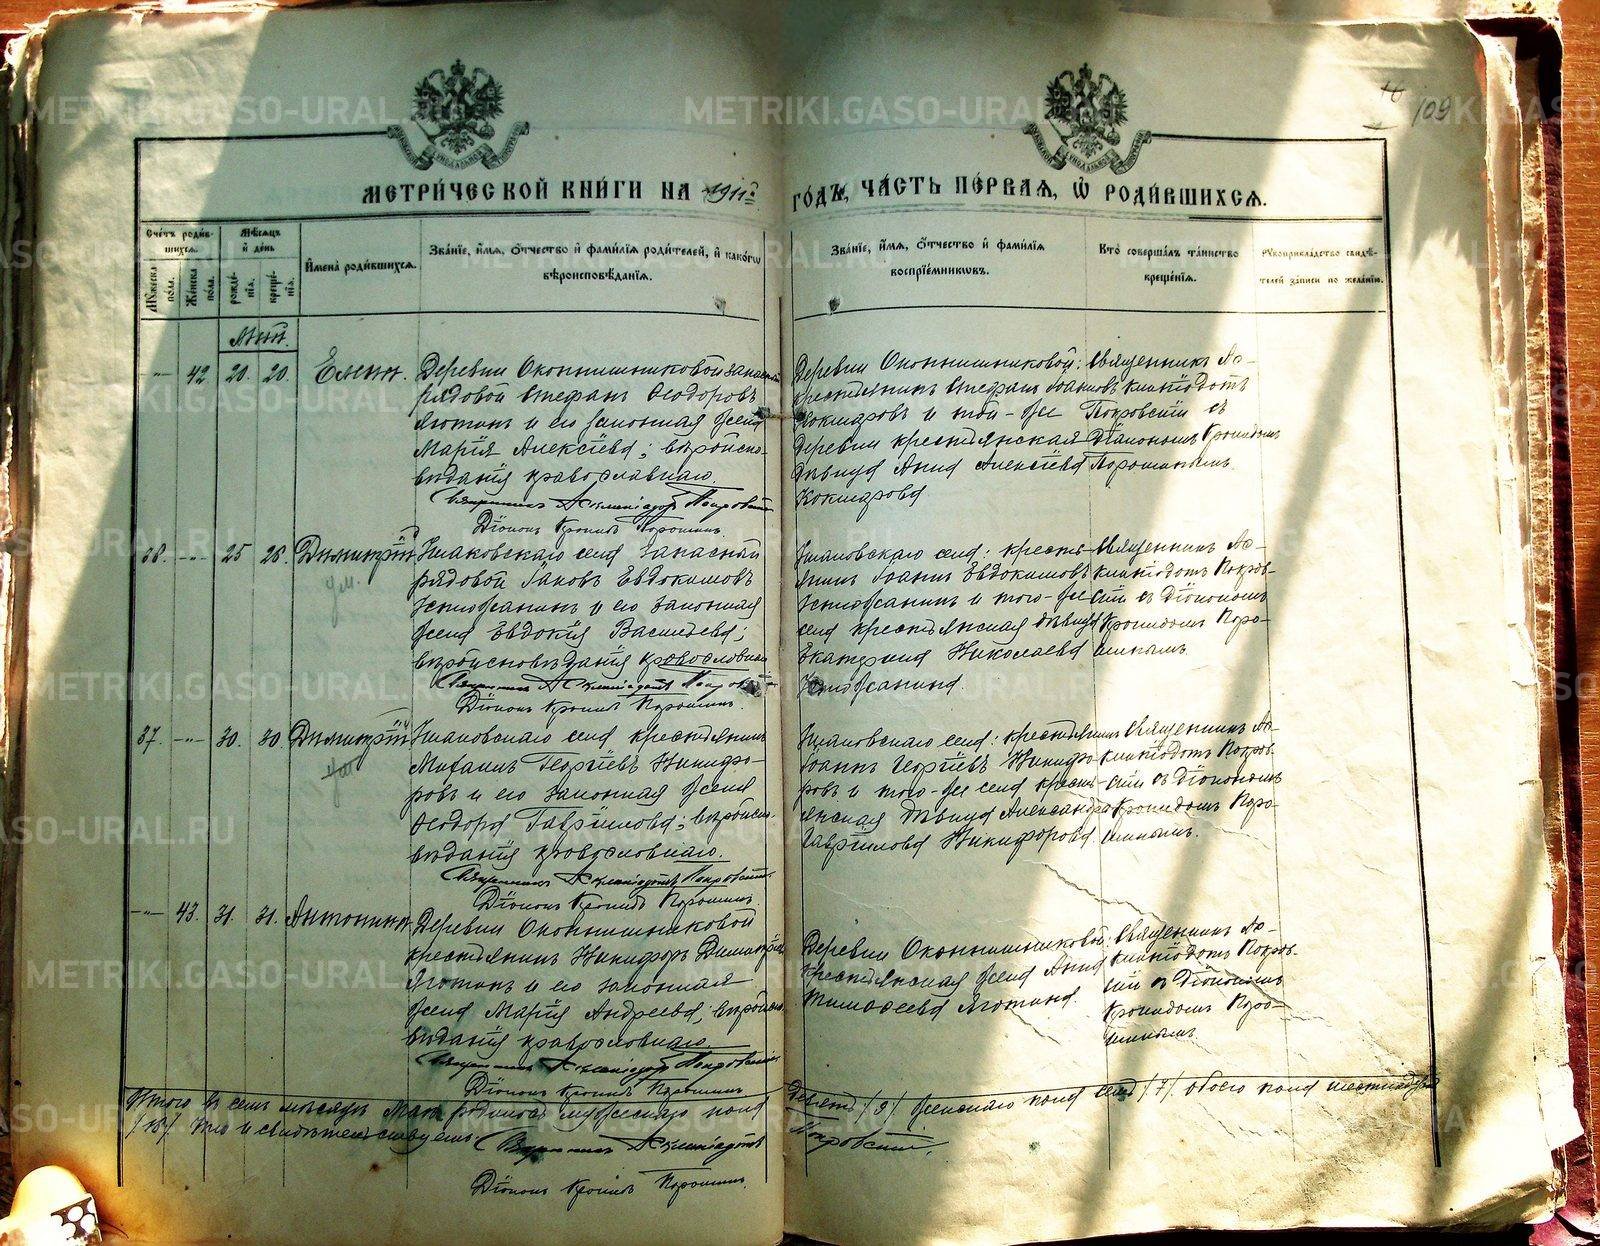 109
МЕТРИ́ЧЕСКОЙ КНИ́ГИ НА 1911 ГО́ДЪ, ЧА́СТЬ ПЕ́РВАЯ, Ѡ РОДИ́ВШИХСЯ.
Сче́тъ роди́вшихся.
Му́жеска по́ла.
Же́нска по́ла.
Мѣ́сяцъ и́ де́нь
рожде́нїя.
креще́нїя.
И́мена роди́вшихся.
Зва́нїе, и́мя, ѻ́тчество и́ фами́лїя роди́телей, и́ како́гѡ
вѣроисповѣ́данїя.
Зва́нїе, и́мя, ѻ́тчество и́ фами́лїя
воспрїе́мниковъ.
Кто̀ соверша́лъ та́инство
креще́нїя.
Рꙋкоприкла́дство свидѣ́-
телей за́писи по жела́нїю.
Май.
42 20. 20. Елена.
Деревни Оконишниковой запасный
рядовой Стефанъ Ѳеодоровъ
Яготинъ и его законная жена
Марія Алексіева; вѣроиспо-
вѣданія православнаго.
Священникъ Асклипіодотъ Покровскій
Діаконъ Кронидъ Порошинъ.
Деревни Оконишниковой:
крестьянинъ Стефанъ Іоанновъ
Кокшаровъ и той-же
деревни крестьянская
дѣвица Анна Алексіева
Кокшарова
Священникъ Ас-
клипіодотъ
Покровскій съ
Діакономъ Кронидомъ
Порошинымъ.
25 26. Димитрій
ум.
села запасный
рядовой Іаковъ Евдокимовъ
и его законная
жена Евдокія Васильева;
вѣроисповѣданія православнаго
Священникъ Асклипіодотъ Покровскій
Діаконъ Кронидъ Порошинъ.
села: кресть-
янинъ Іоаннъ Евдокимовъ
и того-же
села крестьянская дѣвица
Екатерина Николаева
Священникъ Ас-
клипіодотъ Покров-
скій съ Діакономъ
Кронидомъ Поро-
шинымъ.
37. 30. 30. Димитрій
ум
села крестьянинъ
Михаилъ Георгіевъ Никифо-
ровъ и его законная жена
Ѳеодора Гавріилова; вѣроиспо-
вѣданія православнаго.
Священникъ Асклипіодотъ Покровскій.
Діаконъ Кронидъ Порошинъ.
села: крестьянинъ
Іоаннъ Георгіевъ Никифо-
ровъ и того-же села кресть-
янская дѣвица Александра
Гавріилова Никифорова
Священникъ Ас-
клипіодотъ Покров-
скій съ Діакономъ
Кронидомъ Поро-
шинымъ.
43. 31. 31. Антонина
Деревни Оконишниковой
крестьянинъ Никифоръ Димитріевъ
Яготинъ и его законная
жена Марія Андреева; вѣроиспо-
вѣданія православнаго.
Священникъ Асклипіодотъ Покровскій
Діаконъ Кронидъ Порошинъ
Деревни Оконишниковой:
крестьянская жена Анна
Тимоѳеева Яготина.
Священникъ Ас-
клипіодотъ Покров-
скій съ Діакономъ
Кронидомъ Поро-
шинымъ.
Итого въ семъ мѣсяцѣ Маѣ родилось мужескаго пола девять /9/ женскаго пола семь /7/ обоего пола шестнадцать
/16/. Что и свидѣтельствуемъ: Священникъ Асклипіодотъ Покровскій.
Діаконъ Кронидъ Порошинъ.
METRIKI.GASO-URAL.RU